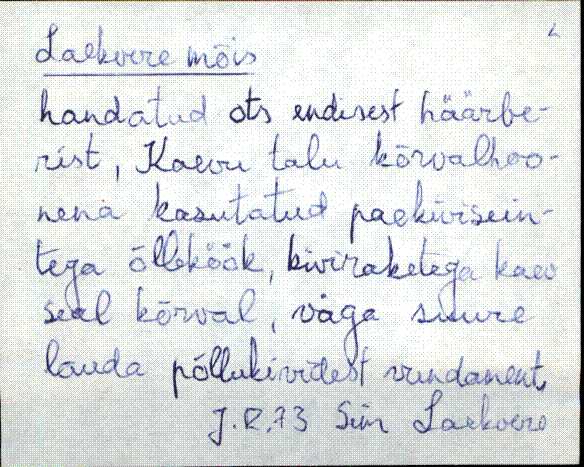 Laekvere mõis
handatud ots endisest häärbe-
rist, Kaevu talu kõrvalhoo-
nena kasutatud paekivisein-
tega õlleköök, kiviraketega kaev
seal kõrval, väga suure
lauda põllukividest vundament,
J.R.73 Sim Laekvere